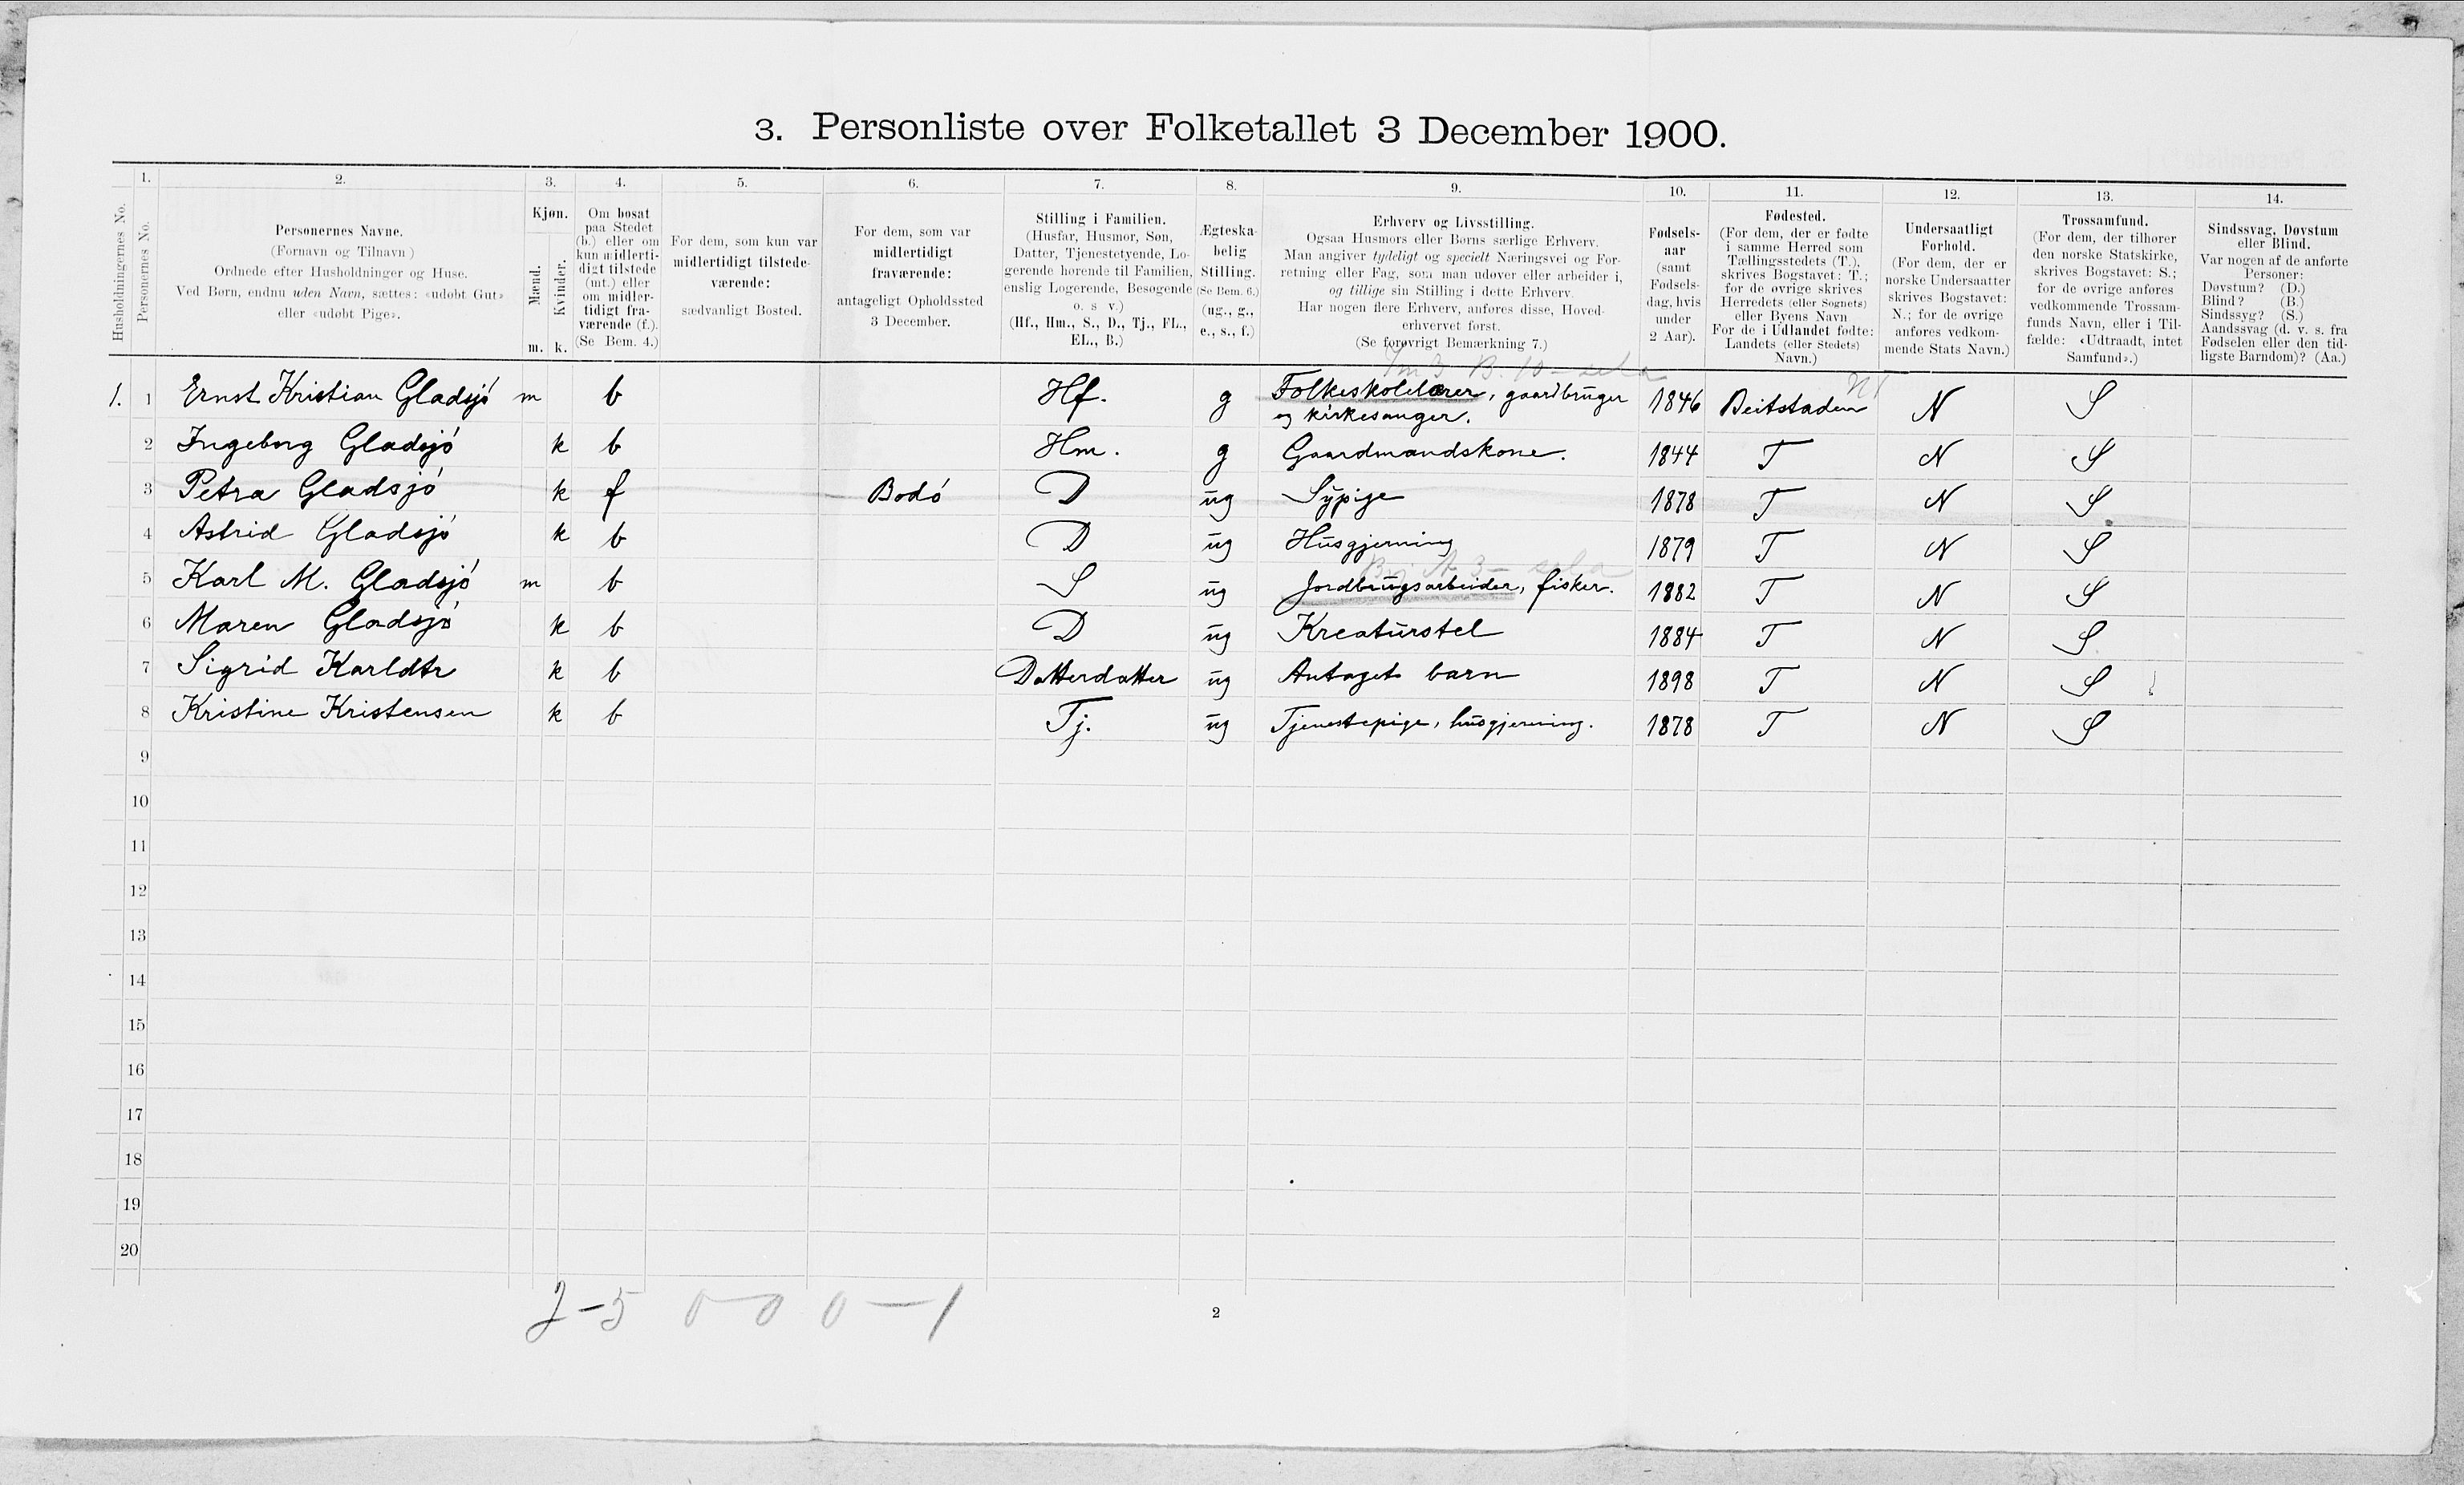 3. Personliste over Folketallet 3 December 1900.
Husholdningernes No.
1. Personernes No.
2. Personernes Navne.
(Fornavn og Tilnavn)
Ordnede efter Husholdninger og Huse.
Ved Børn, endnu uden Navn, sættes: «udøbt Gut»
eller «udøbt Pige».
3. Kjøn.
Mænd. Kvinder.
m. k.
4. Om bosat
paa Stedet
(b.) eller om
kun midlerti-
digt tilstede
(mt.) eller
om midler-
tidigt fra-
værende (f.).
(Se Bem. 4.)
5. For dem, som kun var
midlertidigt tilstede-
værende:
sædvanligt Bosted.
6. For dem, som var
midlertidigt
fraværende:
antageligt Opholdssted
3 December.
7. Stilling i Familien.
(Husfar, Husmor, Søn,
Datter, Tjenestetyende, Lo-
gerende hørende til Familien,
enslig Logerende, Besøgende
o. s v.)
(Hf., Hm., S., D., Tj., FL.,
EL., B.)
8. Ægteska-
belig
Stilling.
(Se Bem. 6.)
(ug., g.,
e., s., f.)
9. Erhverv og Livsstilling.
Ogsaa Husmors eller Børns særlige Erhverv.
Man angiver tydeligt og specielt Næringsvei og For-
retning eller Fag, som man udøver eller arbeider i,
og tillige sin Stilling i dette Erhverv.
Har nogen flere Erhverv, anføres disse, Hoved-
erhvervet først.
(Se forøvrigt Bemærkning 7.)
10. Fødsels-
aar
(samt
Fødsels-
dag, hvis
under
2 Aar).
11. Fødested.
(For dem, der er fødte
i samme Herred som
Tællingsstedets (T.),
skrives Bogstavet: T.;
for de øvrige skrives
Herredets (eller Sognets)
eller Byens Navn
For de i Udlandet fødte:
Landets (eller Stedets)
Navn.)
12. Undersaatligt
Forhold.
(For dem, der er
norske Undersaatter
skrives Bogstavet:
N.; for de øvrige
anføres vedkom-
mende Stats Navn.)
13. Trossamfund.
(For dem, der tilhører
den norske Statskirke,
skrives Bogstavet: S.;
for de øvrige anføres
vedkommende Trossam-
funds Navn, eller i Til-
fælde: «Udtraadt, intet
Samfund».)
14. Sindssvag, Døvstum
eller Blind.
Var nogen af de anførte
Personer:
Døvstum? (D.)
Blind? (B.)
Sindssyg? (S.)
Aandssvag (d. v. s. fra
Fødselen eller den tid-
ligste Barndom)? (Aa.)
1. 1 Ernst Kristian Gladsjó m b Hf. g Folkeskolelærer, gaardbruger 1846 Beitstaden N S
og kirkesanger.
2 Ingeborg Gladsjó k b Hm. g Gaardmandskone. 1844 T N S
3 Petra Gladsjó k f Bodó D ug Sypige 1878 T N S
4 Astrid Gladsjó k b D ug Husgjerning 1879 T N S
5 Karl M. Gladsjó m b S ug Jordbrugsarbeider, fisker. 1882 T N S
6 Maren Gladsjó k b D ug Kreaturstel 1884 T N S
7 Sigrid Karldtr k b Datterdatter ug Antaget barn 1898 T N S
8 Kristine Kristensen k b Tj. ug Tjenestepige, husgjerning. 1878 T N S
9
10
11
12
13
14
15
16
17
18
19
20
2-5 0-0 0-1
2